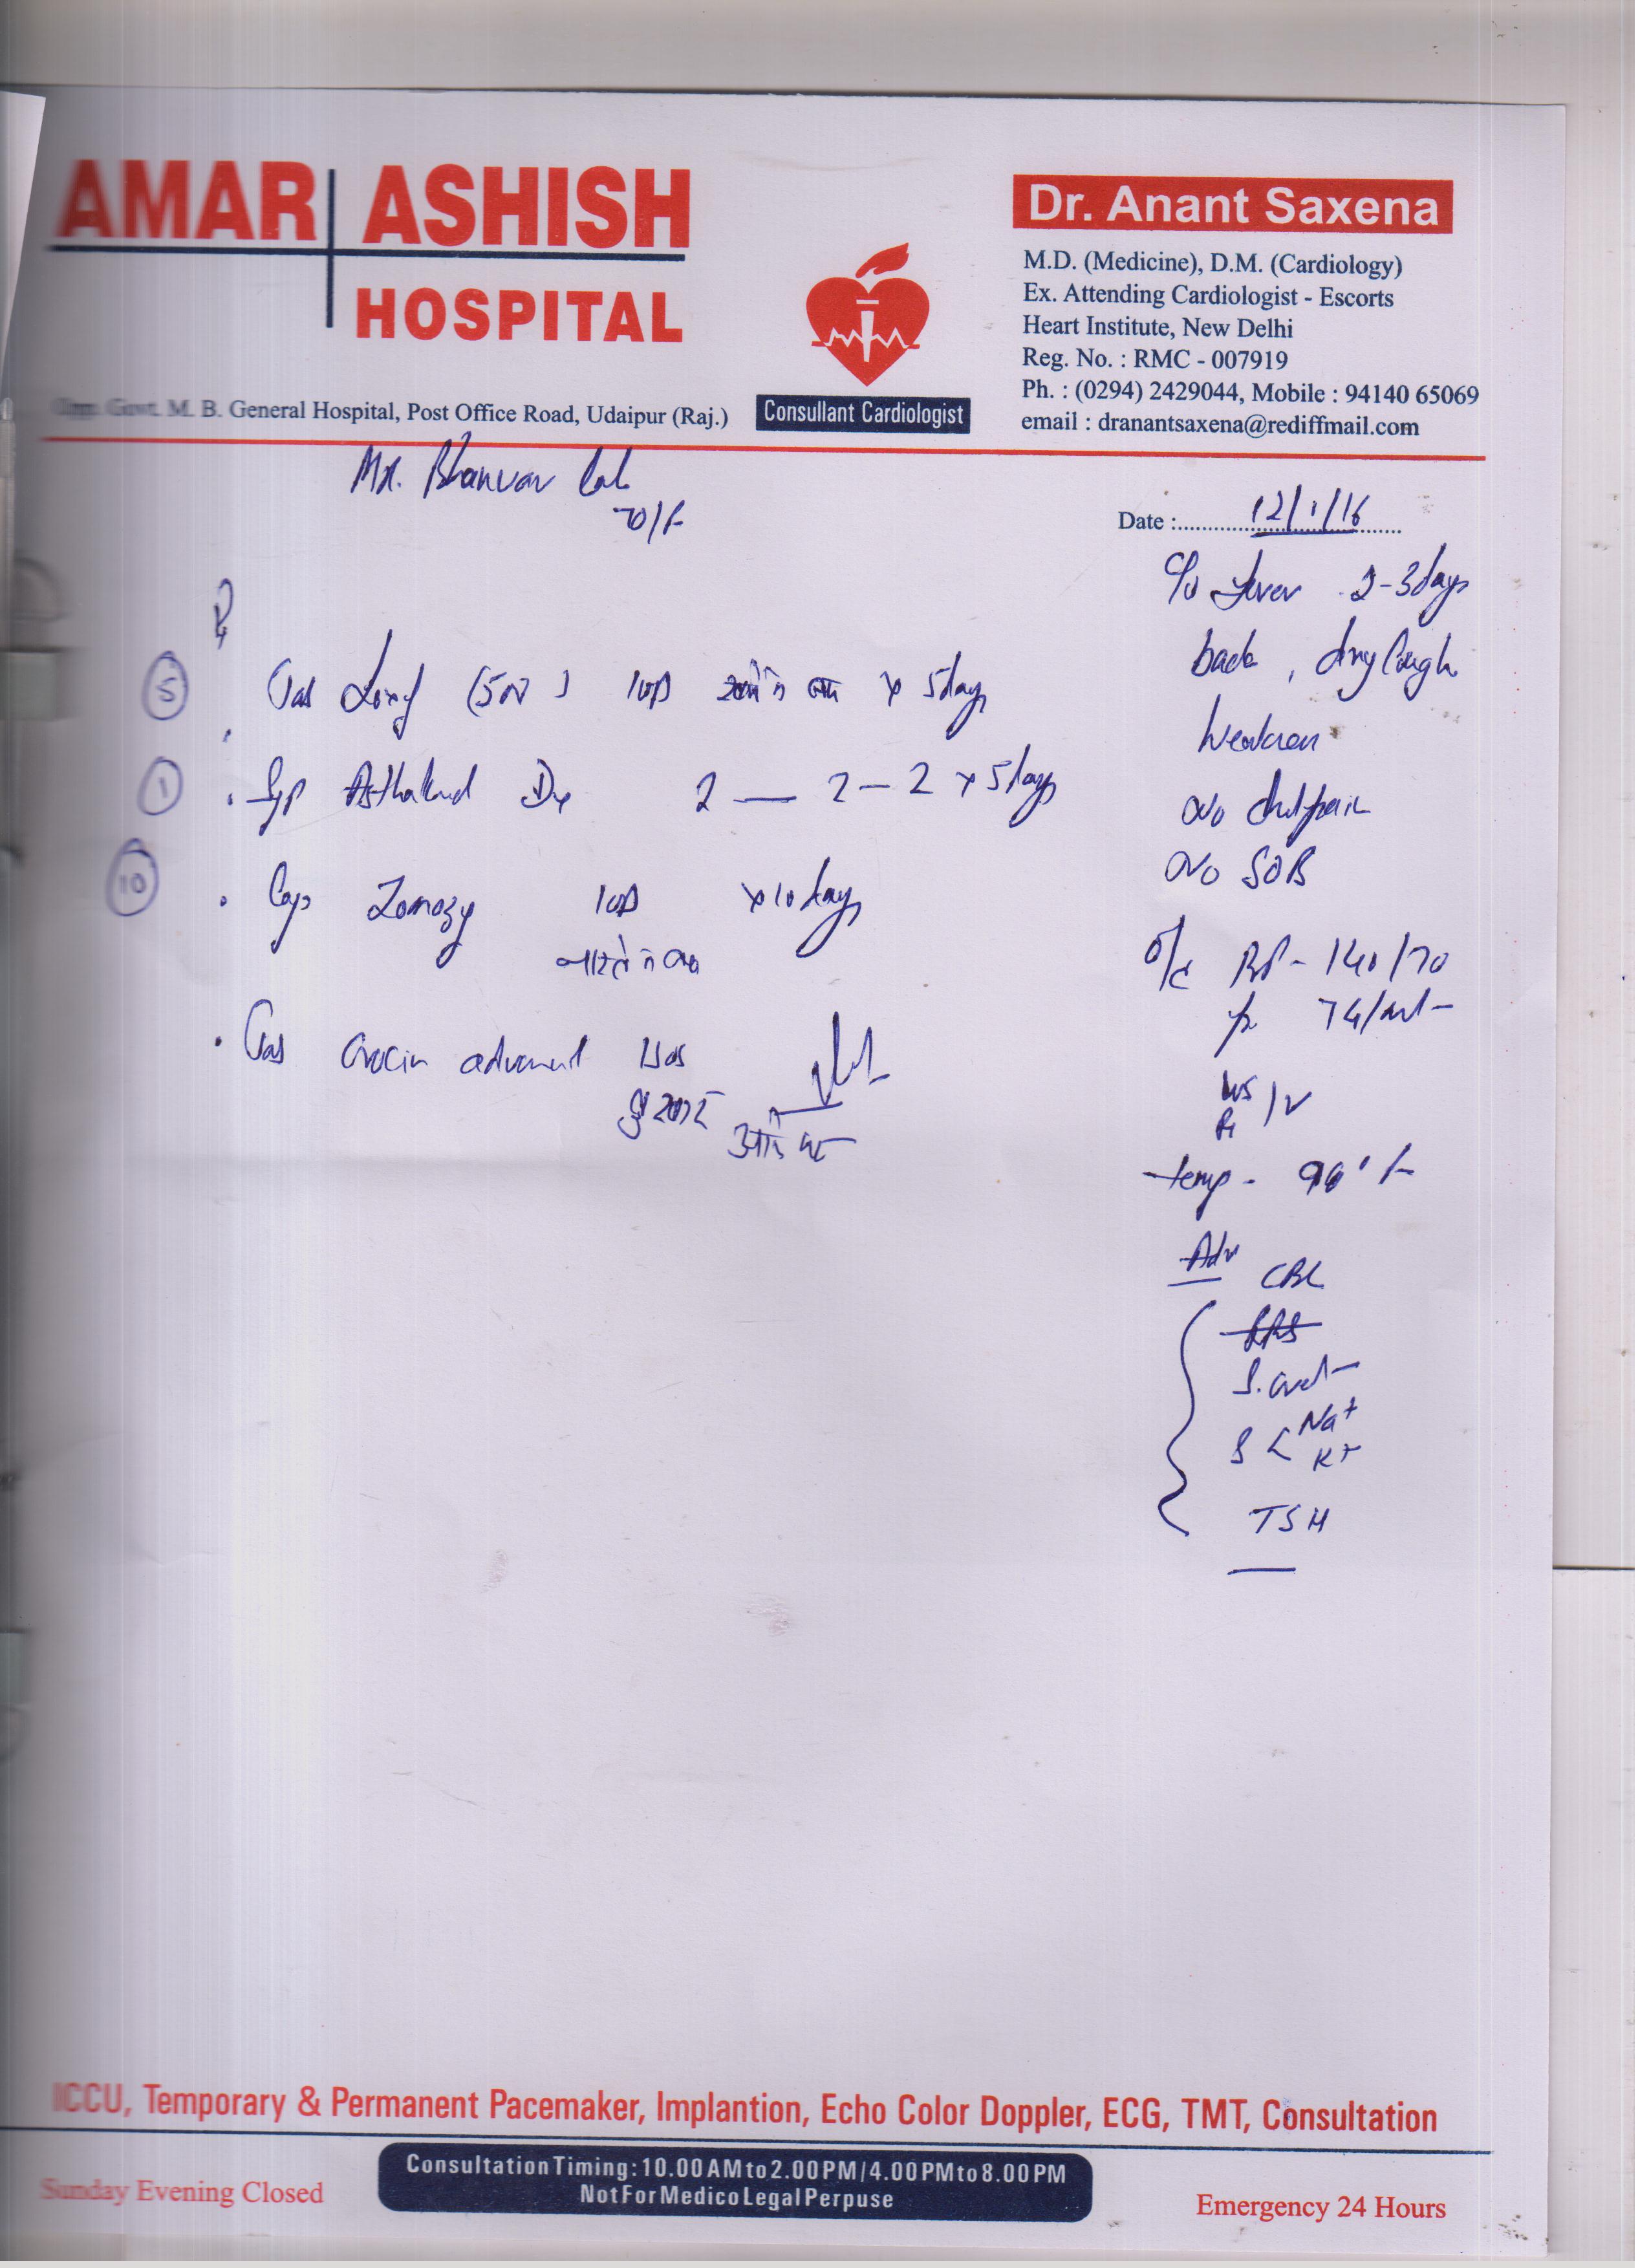 AMAR ASHISH
HOSPITAL
Govt. M. B. General Hospital, Post Office Road, Udaipur (Raj.)
Consullant Cardiologist
Dr. Anant Saxena
M.D. (Medicine), D.M. (Cardiology)
Ex. Attending Cardiologist - Escorts
Heart Institute, New Delhi
Reg. No. : RMC - 007919
Ph. : (0294) 2429044, Mobile : 94140 65069
email : dranantsaxena@rediffmail.com
Mr. Bhanvar Lal
Date : 12/1/16
c/o fever 2-3days
back, dry Cough
Weakness
No chest pain
No SOB
5
Tab (500) x 5days
1
Syp Dx 2 — 2 - 2 x 5days
10
Cap x 10 days
Tab Crocin advance
O/E BP - 140/70
74/
temp -
Adv CBC
S. creat
S < Na+
K+
TSH
ICCU, Temporary & Permanent Pacemaker, Implantion, Echo Color Doppler, ECG, TMT, Consultation
Sunday Evening Closed
Consultation Timing: 10.00 AM to 2.00 PM / 4.00 PM to 8.00 PM
Not For Medico Legal Perpuse
Emergency 24 Hours